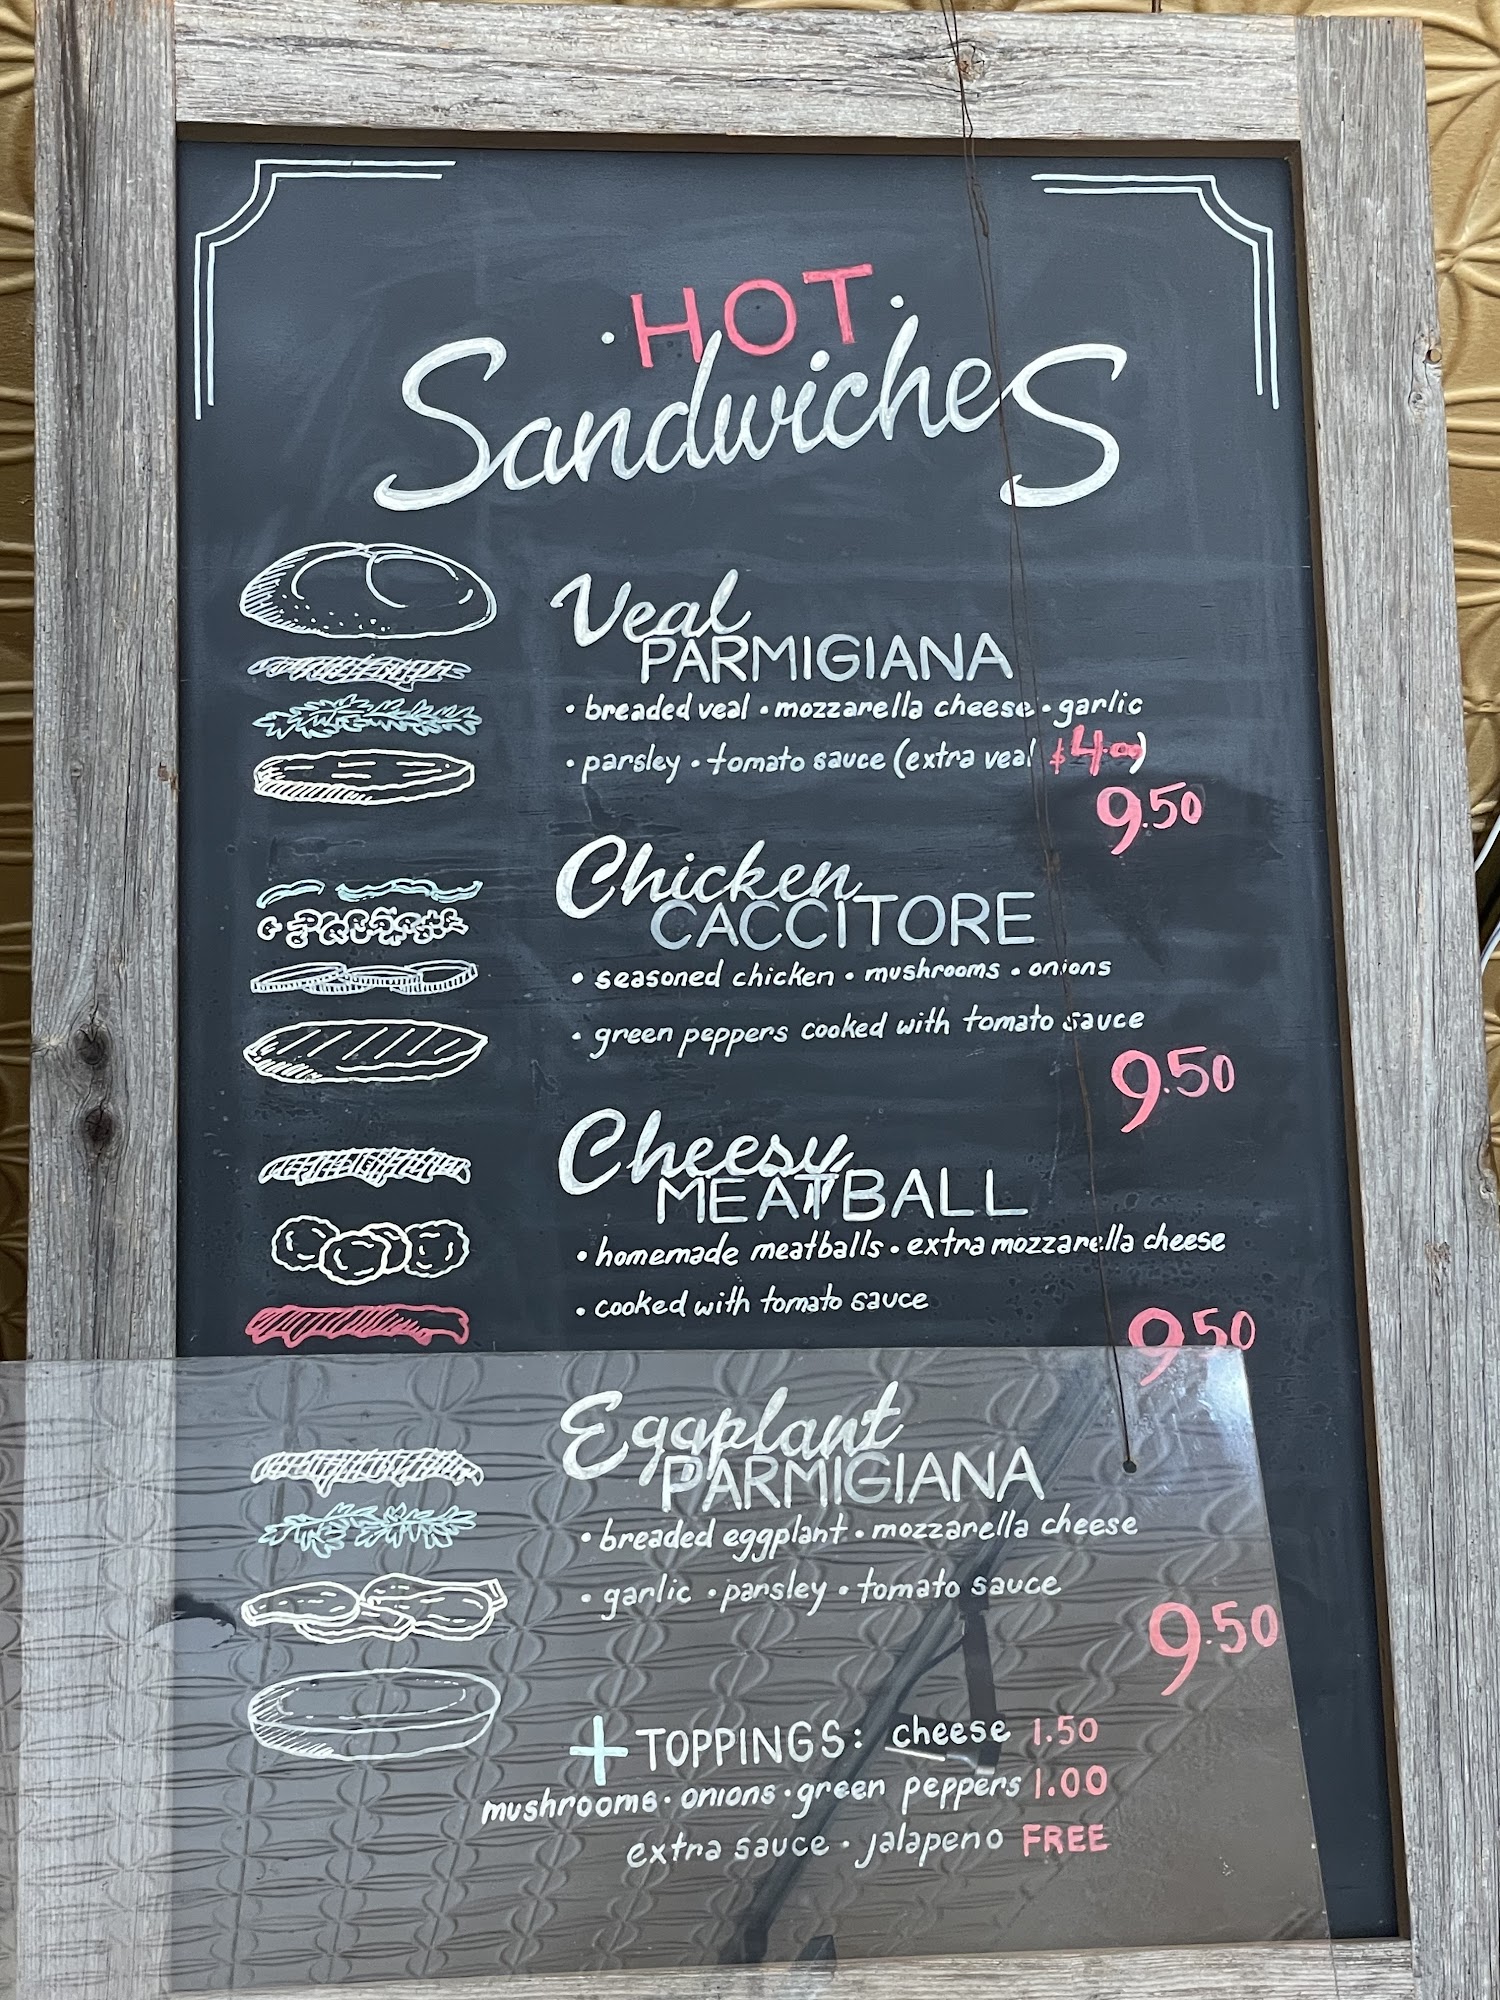 • HOT •
Sandwiches
Veal
PARMIGIANA
• breaded veal • mozzarella cheese • garlic
• parsley • tomato sauce (extra veal $4.00)
9.50
Chicken
CACCITORE
• seasoned chicken • mushrooms • onions
• green peppers cooked with tomato sauce
9.50
Cheesy
MEATBALL
• homemade meatballs • extra mozzarella cheese
• cooked with tomato sauce
9.50
Eggplant
PARMIGIANA
• breaded eggplant • mozzarella cheese
• garlic • parsley • tomato sauce
9.50
+ TOPPINGS: cheese 1.50
mushrooms • onions • green peppers 1.00
extra sauce • jalapeno FREE